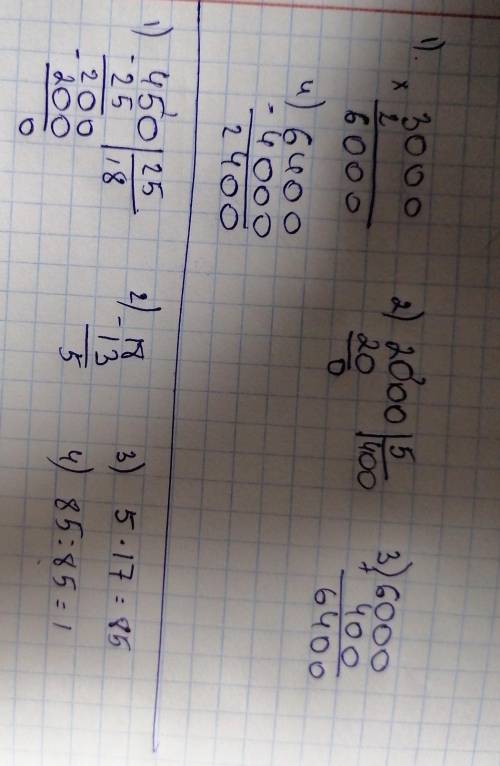 1). 3000
× 2
6000
2) 2000 | 5
20 | 400
0
3) 6000
+ 400
6400
4) 6400
- 4000
2400
1) 450 | 25
- 25 | 18
- 200
200
0
2) 18
- 13
5
3) 5 · 17 = 85
4) 85 : 85 = 1